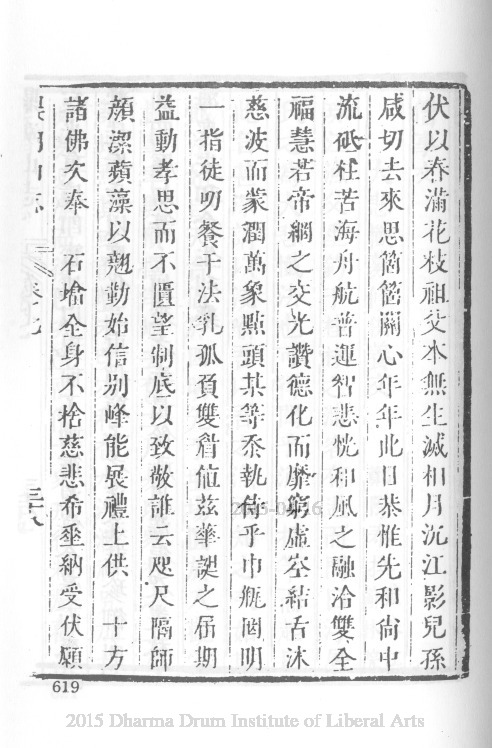 伏以春滿花枝祖父本無生滅相月沉江影兒孫
咸切去來思箇箇關心年年此日恭惟先和尚中
流砥柱苦海舟航普運智悲恍和風之融洽雙全
福慧若帝網之交光讚德化而靡窮虛空結舌沐
慈波而蒙潤萬象點頭某等忝執侍乎巾瓶罔明
一指徒叨餐于法乳孤負雙眉值茲華誕之屆期
益動孝思而不匱望制底以致敬誰云咫尺隔師
顏潔蘋藻以翹勤始信别峰能展禮上供　十方
諸佛次奉　石堷全身不捨慈悲希垂納受伏願
卷九
三十八
619
2015 Dharma Drum Institute of Liberal Arts